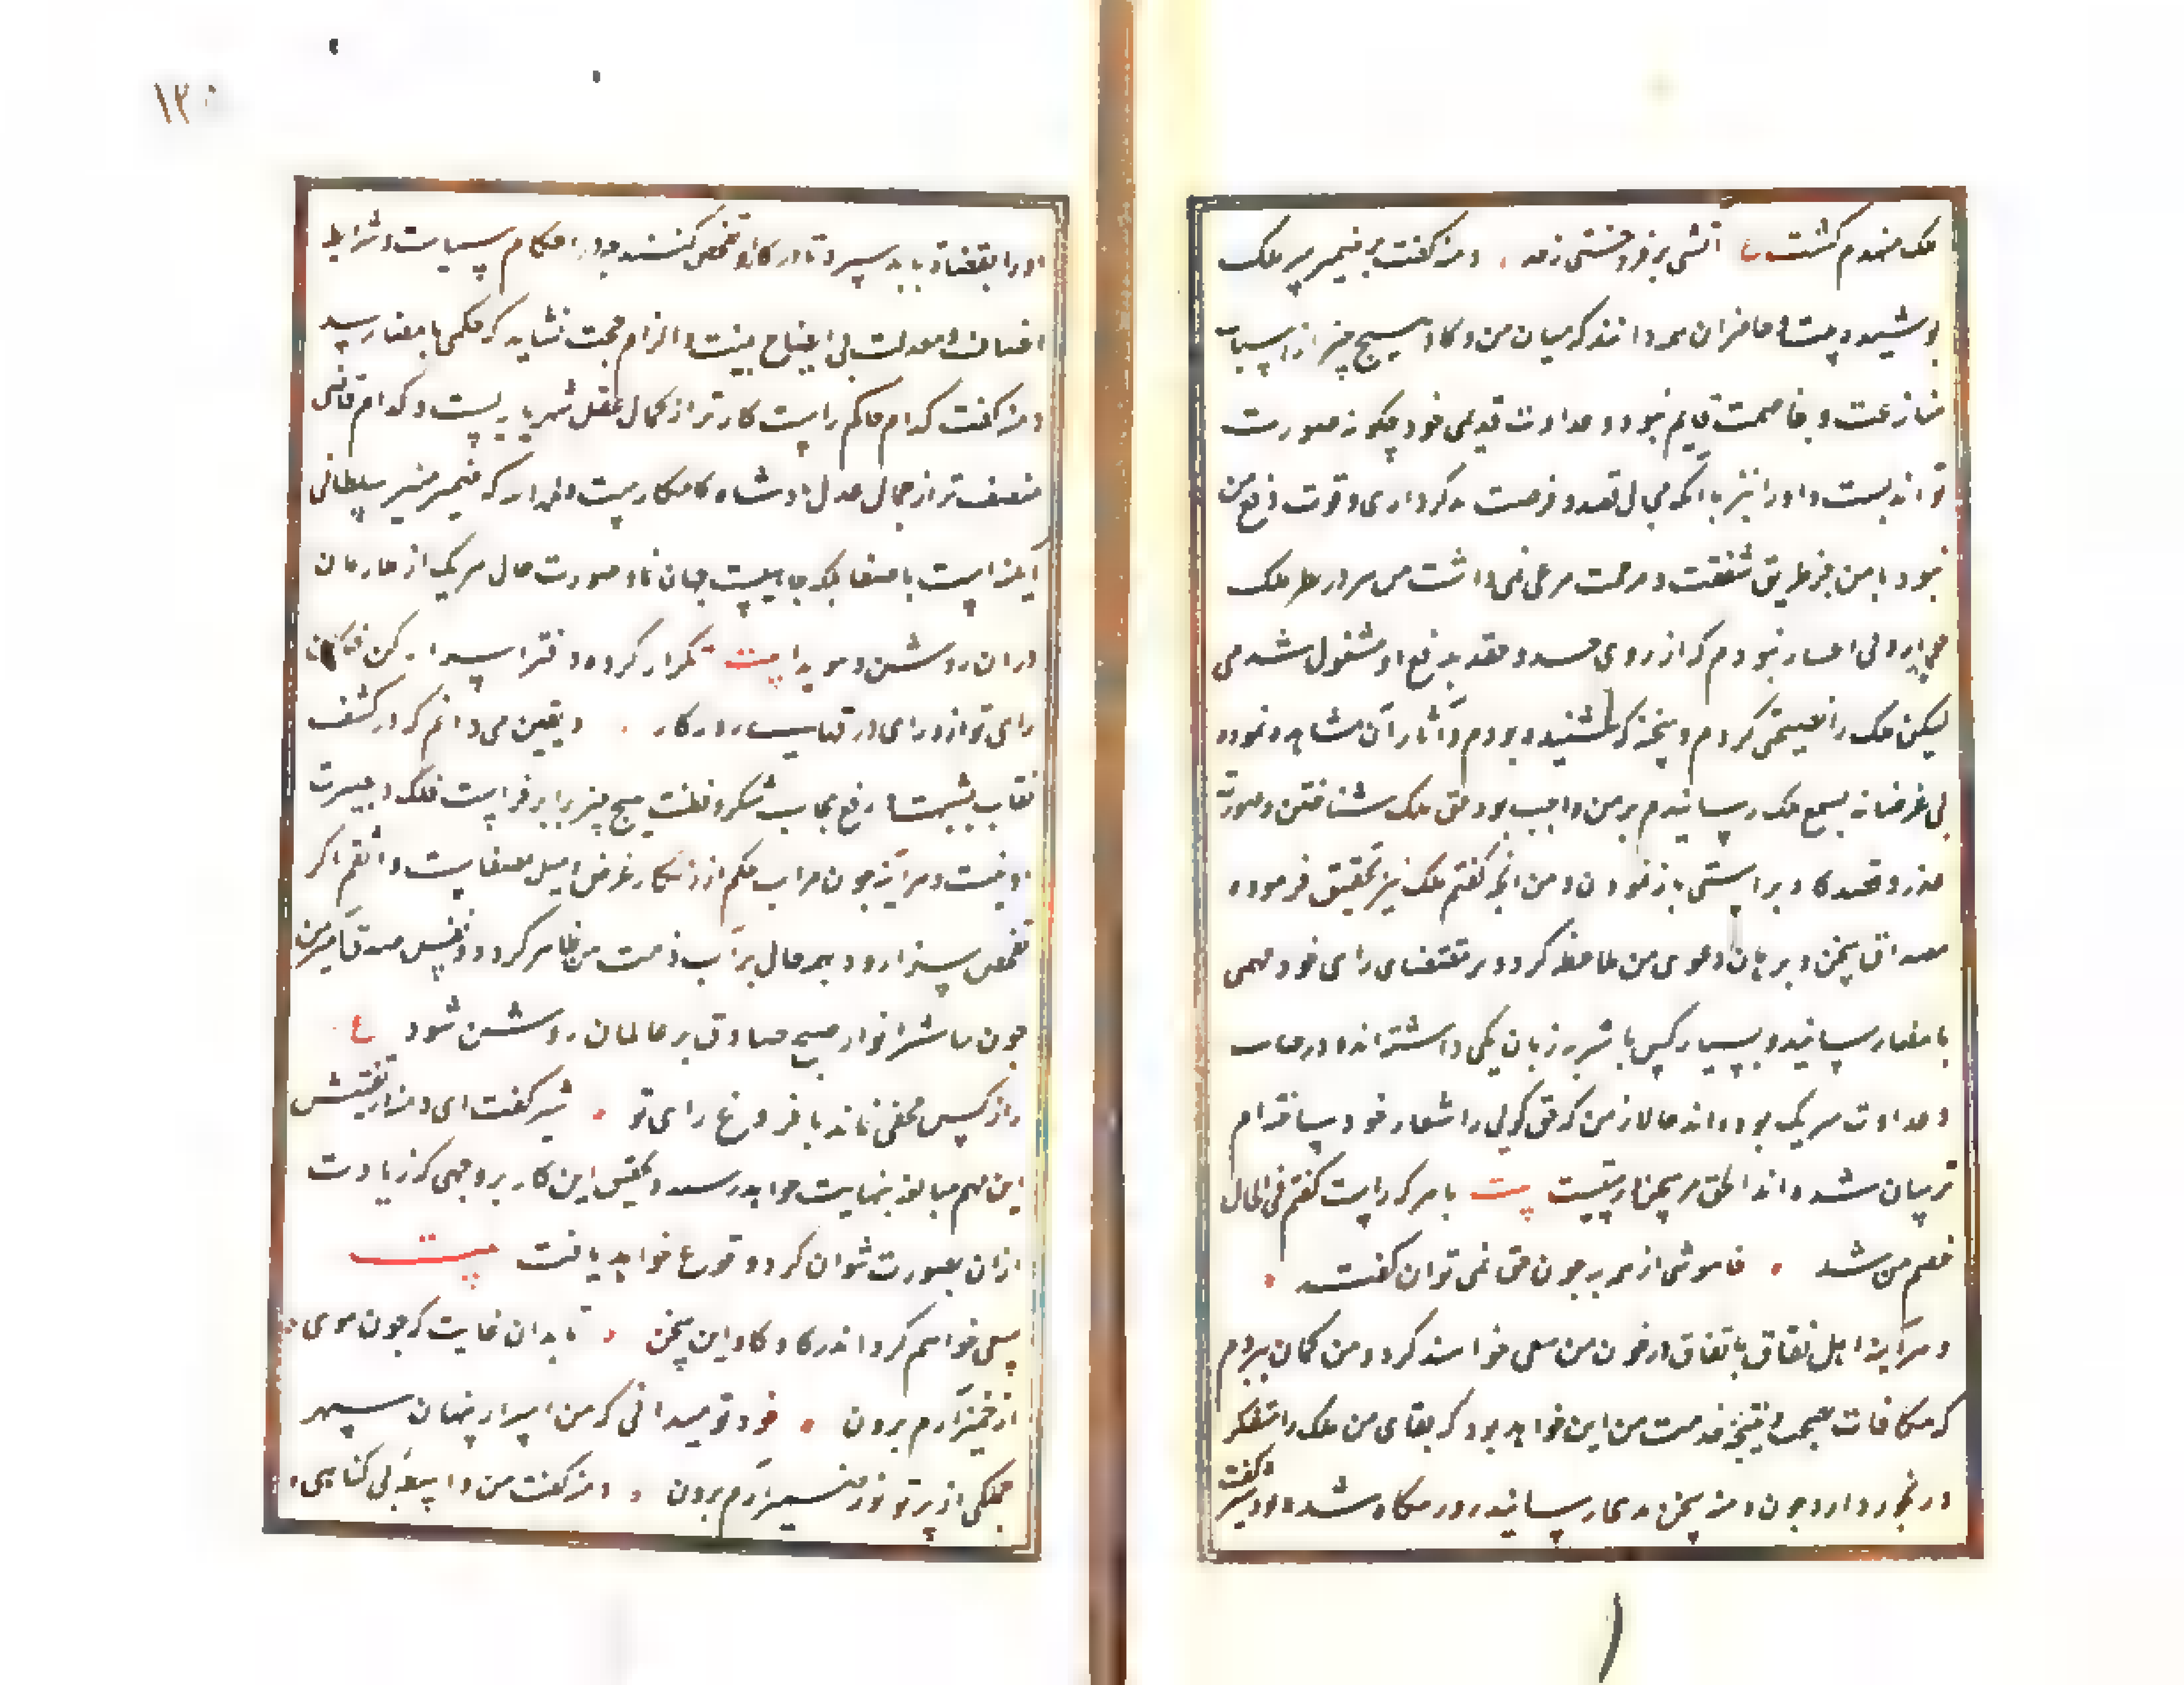 ملک منهدم کشت ع آتشی برفروختی زحد . دمنه کفت بر ضمیر منیر ملک
پوشیده نیست و حاضران هم دانند که میان من و کاو هیچ چیز از اسباب
منازعت و مخاصمت قایم نبود و عداوت قدیمی خود چکونه صورت
تواند بست و او را نیز با آنکه مجال قصد و فرصت بدکرداری و قوت دفع من
نبود با من جز طریق شفقت و مرحمت مرعی نمی داشت من هم در نظر ملک
چنان بی اعتبار نبودم که از روی حسد و حقد بدفع او مشغول شدمی
لیکن ملک را نصیحتی کردم و سخنی که شنیده بودم و آثار آن مشاهده نموده
بی غرضانه بسمع ملک رسانیدم بر من واجب بود حق ملک شناختن و صورت
غدر و قصد کاو براستی باز نمودن و من آنچه کفتم ملک نیز تحقیق فرموده
مصداق سخن و برهان دعوی من ملاحظه کرد و بر مقتضای رای خود مهمی
بامضا رسانید و بسیار کس با شنزبه زبان یکی داشته اند و در خیانت
و عداوت شریک بوده اند حالا از من که حق کویی را شعار خود ساخته ام
ترسان شده اند الحق مر سخنان راستست بیت با هر که راست کفتم فی الحال
خصم من شد . خاموشی از همه به چون حق نمی توان کفت .
و هر آینه اهل نفاق باتفاق در خون من سعی خواهند کرد و من کمان نبردم
که مکافات نصیحت و نتیجه خدمت من این خواهد بود که بقای من ملک را متفکر
و رنجور دارد چون دمنه سخن بدینجا رسانید و روز بیکاه شده بود شیر کفت
او را بقضاة باید سپرد تا در کار او تفحص کنند چه در احکام سیاست و شرایط
انصاف و معدلت بی ایضاح بینت و الزام حجت نشاید که حکمی بامضا رسد
دمنه کفت کدام حاکم راست کارتر از کمال عقل شهریارست و کدام قاضی
منصف تر از جمال عدل پادشاه کامکار نیست والحمد لله که ضمیر منیر سلطانی
آینه ایست با صفا بلکه جامیست جهان نما و صورت حال هر یک از ملازمان
در ان روشن و هویدا بیت تکرار کرده دفتر اسرار کن فکان
رای تو از ورای در قیاسات روزکار . و یقین می دانم که در کشف
نقاب شبهت و رفع حجاب شک و فطنت هیچ چیز برابر فراست ملک و بصیرت
او نیست و هر آینه چون مرآت حکم از زنکار غرض و میل مصفاست واثقم اکر
تفحص بسزا رود بهمه حال برآءت ذمت من ظاهر کردد و نفس صدق آمیز من
چون مباشر انوار صبح صادق بر عالمیان روشن شود ع
راز کس مخفی نماند با فروغ رای تو . شیر کفت ای دمنه در تفتیش
این مهم مبالغه بنهایت خواهد رسید و تفتیش این کار بر وجهی که زیادت
از ان بصورت نتوان کرد وقوع خواهد یافت بیت
سعی خواهم کرد اندر کاو کاو این سخن . تا بدان غایت که چون موی
از خمیر آرم برون . خود تو میدانی که من اسرار پنهان سپهر
جملکی از پرتو نور ضمیر آرم برون . دمنه کفت من واسطه بی کناهی
۱۲۵